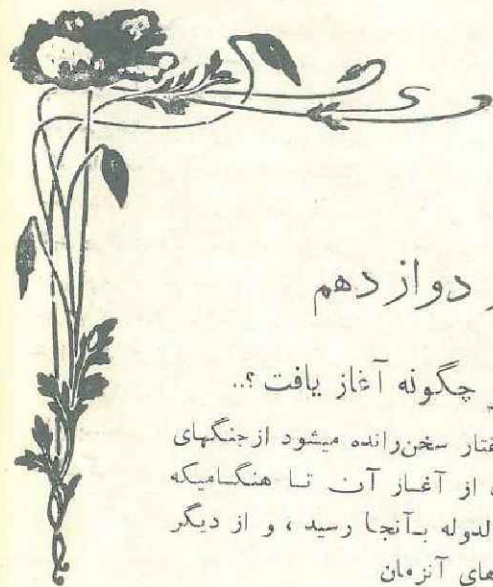 دوازدهم
چگونه آغاز یافت؟..
سخن‌رانده میشود از جنگهای
از آغاز آن تا هنگامیکه
الدوله بآنجا رسید ، و از دیگر
آنزمان